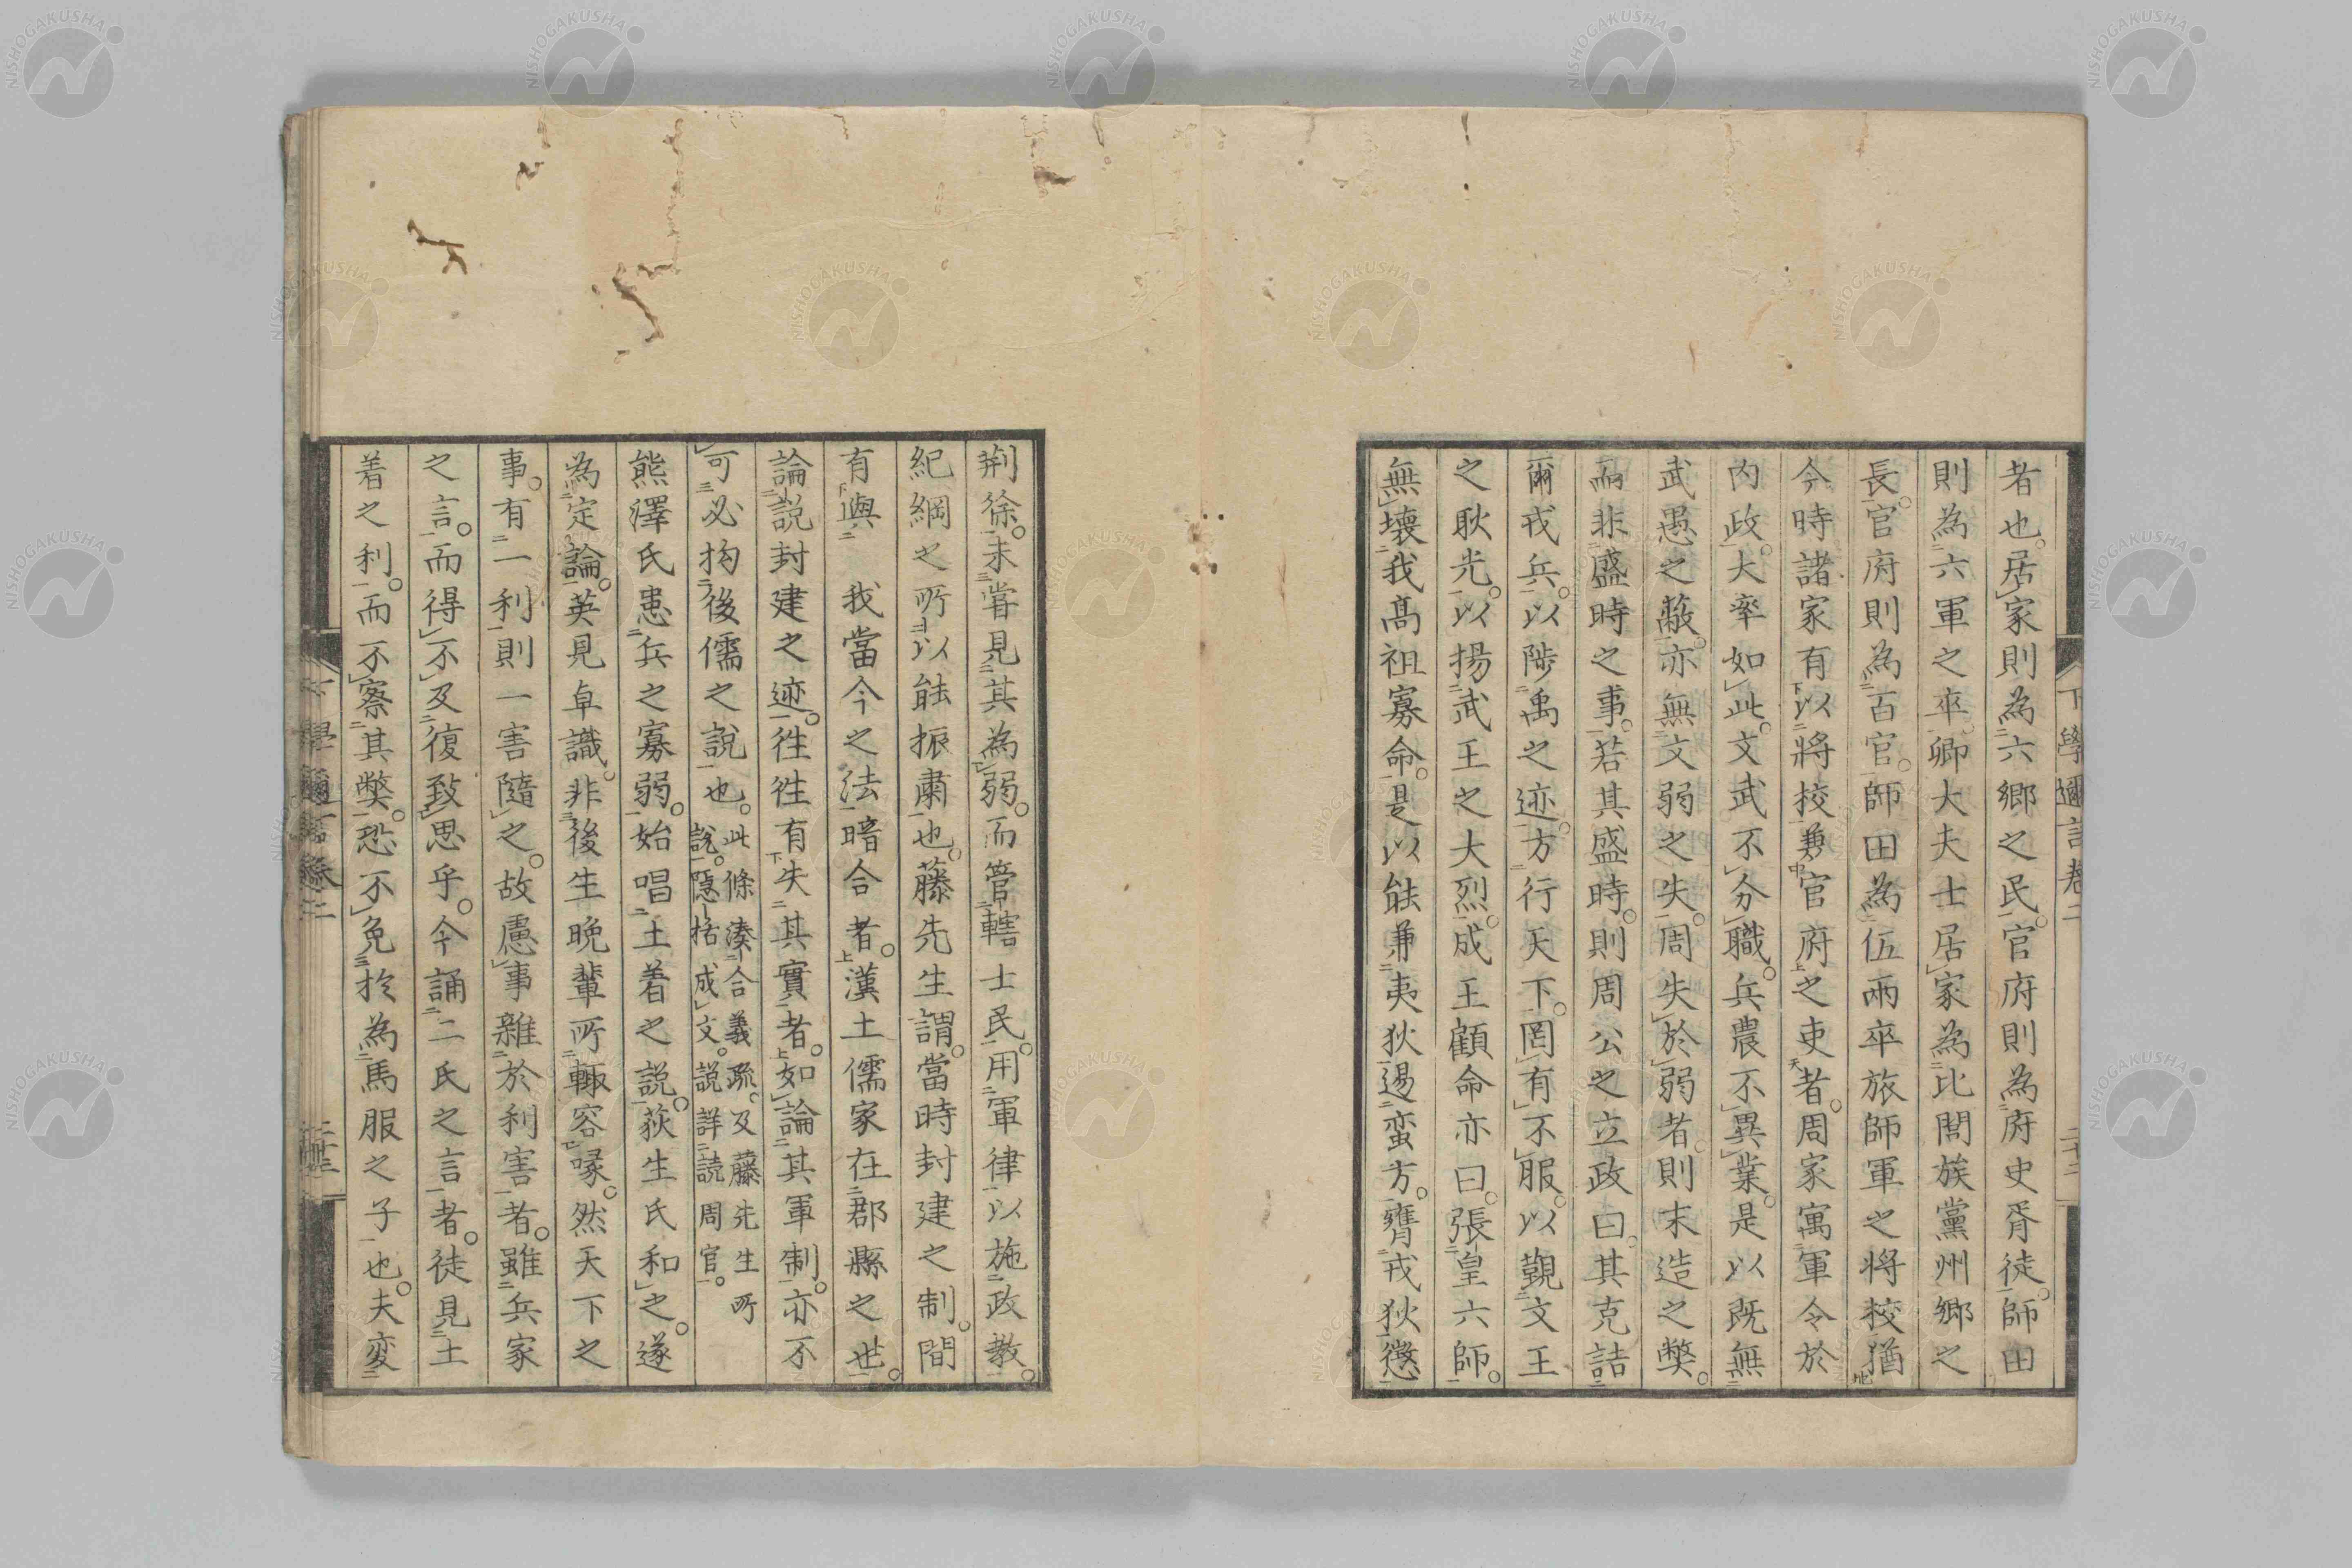 者也。居家則為六鄉之民。官府則為府史胥徒。師田
則為六軍之卒。卿大夫士居家為比閭族黨州鄉之
長。官府則為百官。師田為伍兩卒旅師軍之將校。猶
今時諸家有以將校兼官府之吏者。周家寓軍令於
內政。大率如此。文武不分職。兵農不異業。是以既無
武愚之蔽。亦無文弱之失。周失於弱者。則末造之弊。
而非盛時之事。若其盛時。則周公之立政曰。其克詰
爾戎兵。以陟禹之迹。方行天下。罔有不服。以覲文王
之耿光。以揚武王之大烈。成王顧命亦曰。張皇六師。
無壞我高祖寡命。是以能兼夷狄。遏蛮方。膺戎狄。懲
下學邇言卷二
二十二
荆徐。未嘗見其為弱。而管轄士民。用軍律以施政教。
紀綱之所以能振肅也。藤先生謂。當時封建之制。間
有與 我當今之法暗合者。漢土儒家在郡縣之世。
論說封建之迹。往往有失其實者。如論其軍制。亦不
可必拘後儒之說也。此條湊合義疏。及藤先生所
說。隱括成文。說詳読周官。
熊澤氏患兵之寡弱。始唱土着之說。荻生氏和之。遂
為定論。英見卓識。非後生晩輩所輙容喙。然天下之
事。有一利則一害隨之。故慮事雜於利害者。雖兵家
之言。而得不及復致思乎。今誦二氏之言者。徒見土
着之利。而不察其弊。恐不免於為馬服之子也。夫変